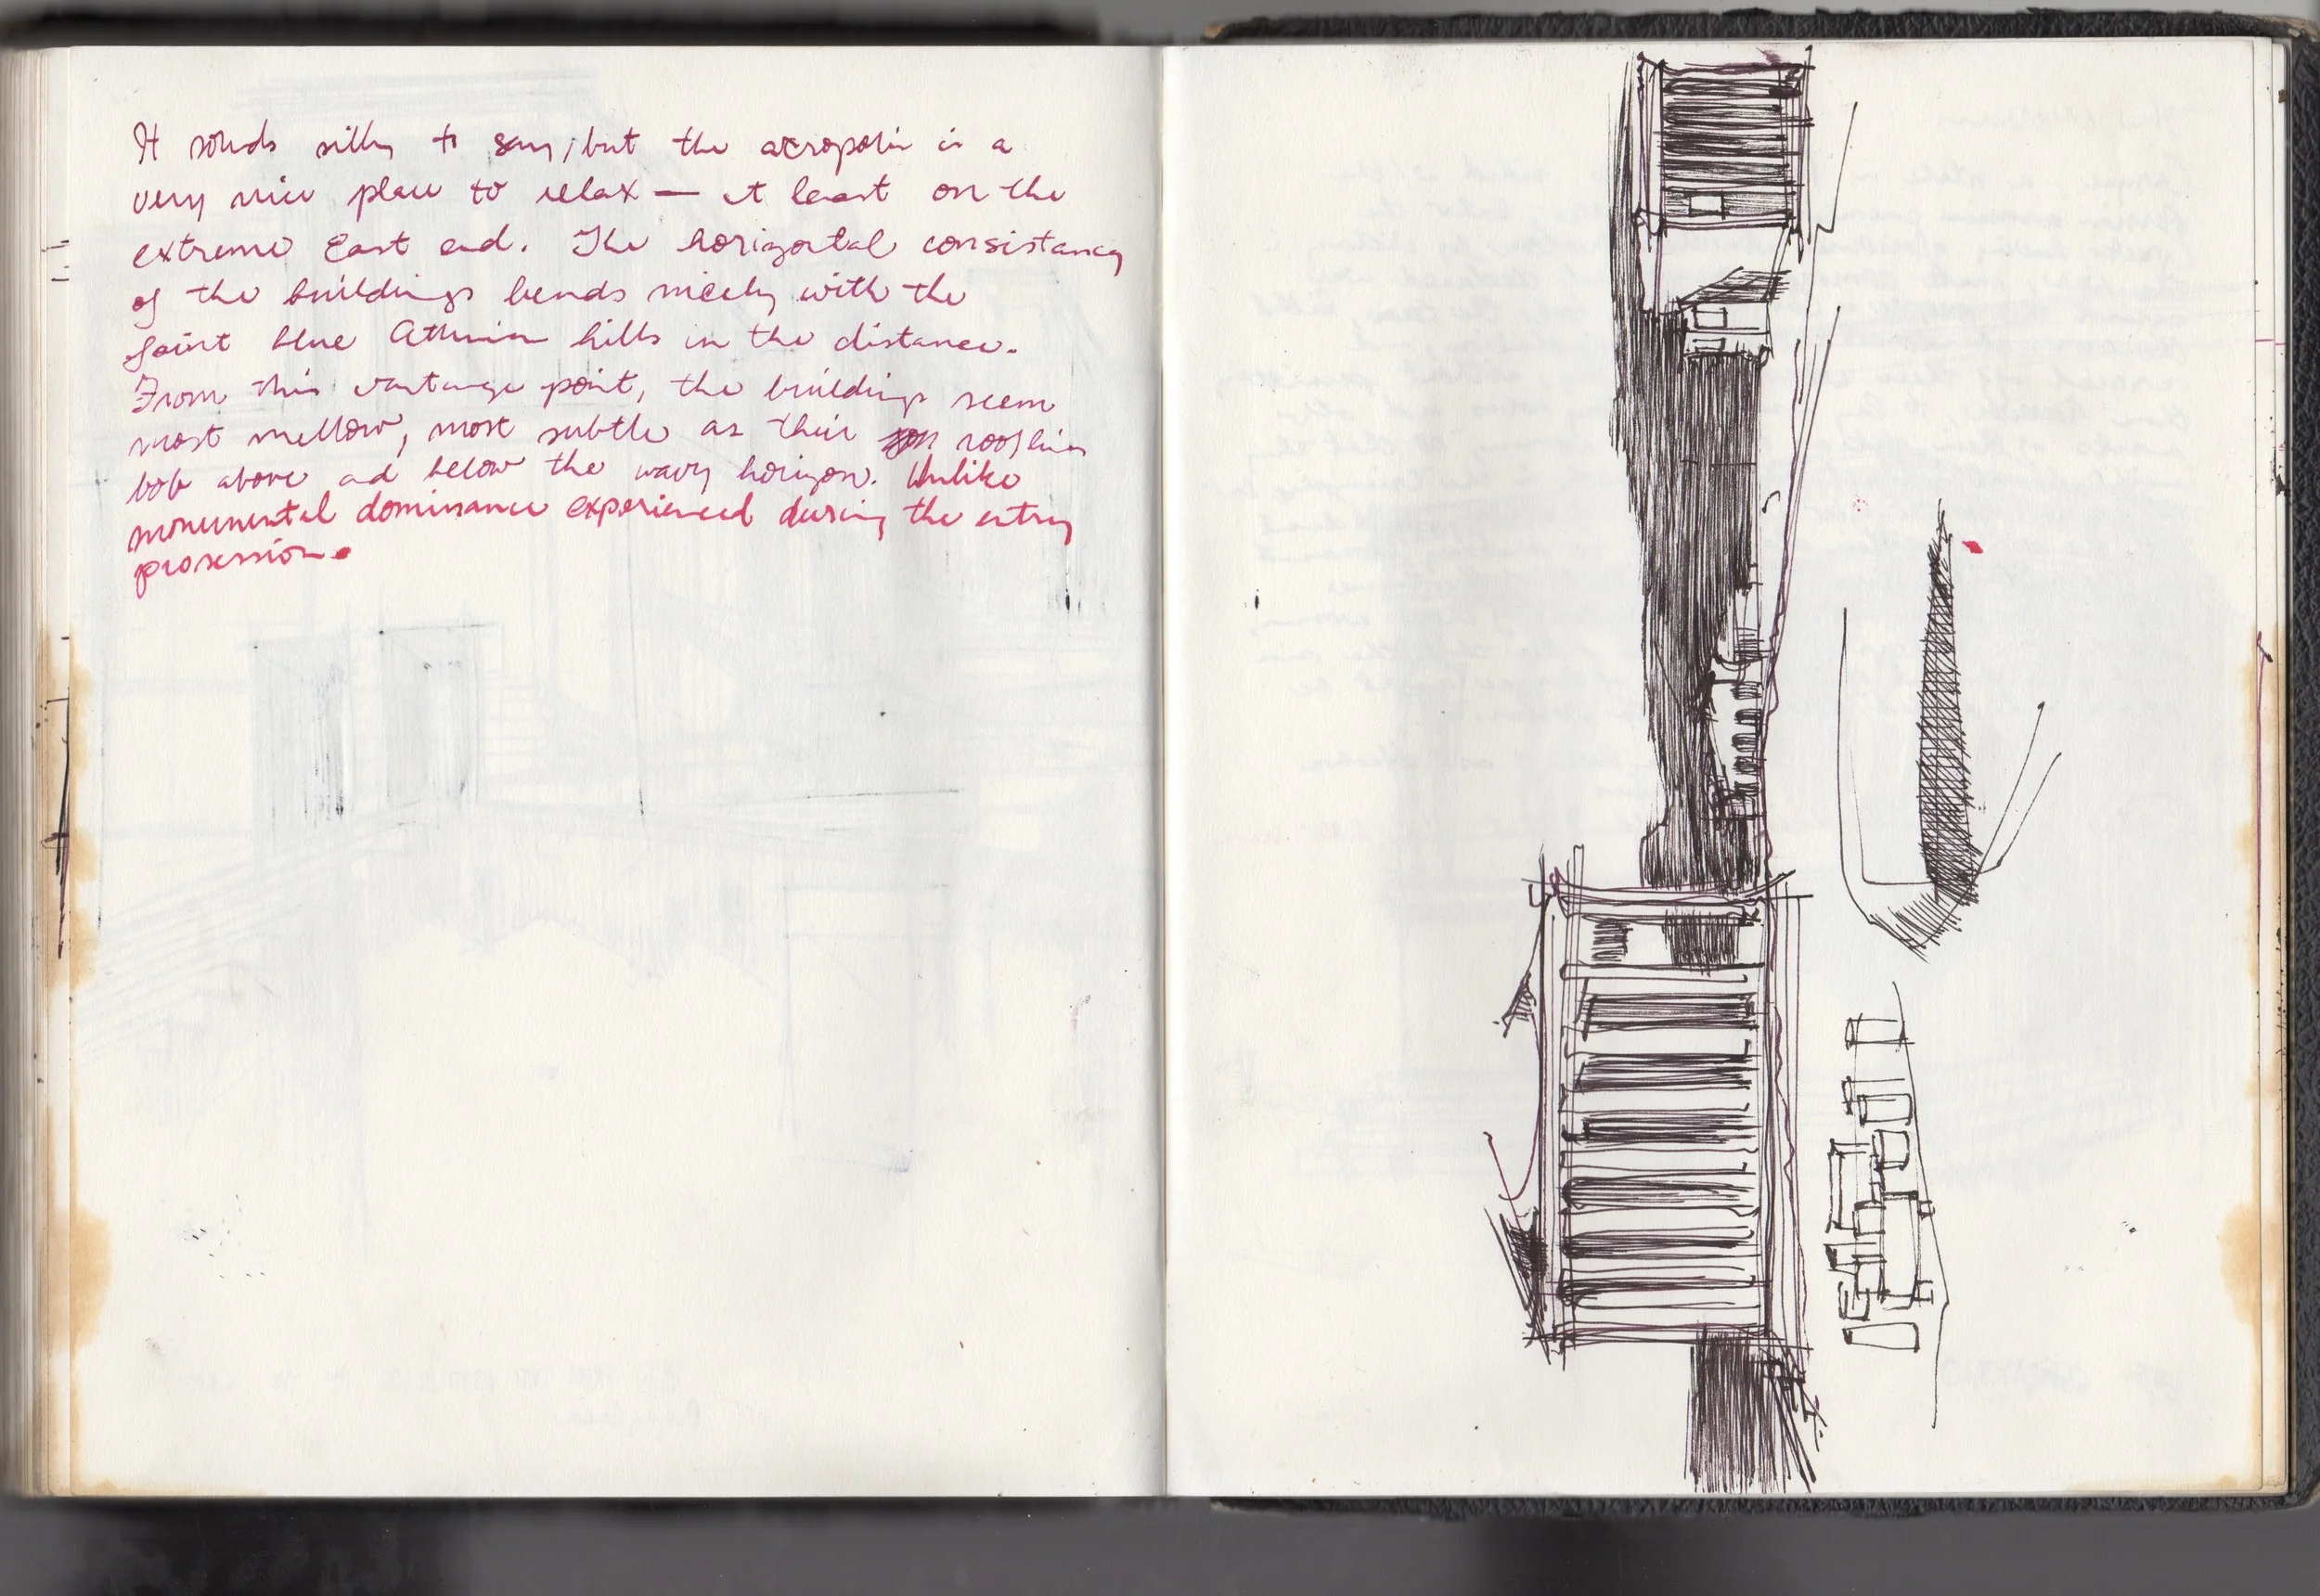 It sounds silly to say, but the acropolis is a
very nice place to relax — at least on the
extreme East end. The horizontal consistancy
of the buildings bends nicely with the
faint blue Athenian hills in the distance.
From this vantage point, the buildings seem
most mellow, most subtle as their rooflines
bob above and below the wavy horizon. Unlike
monumental dominance experienced during the entry
prosession.